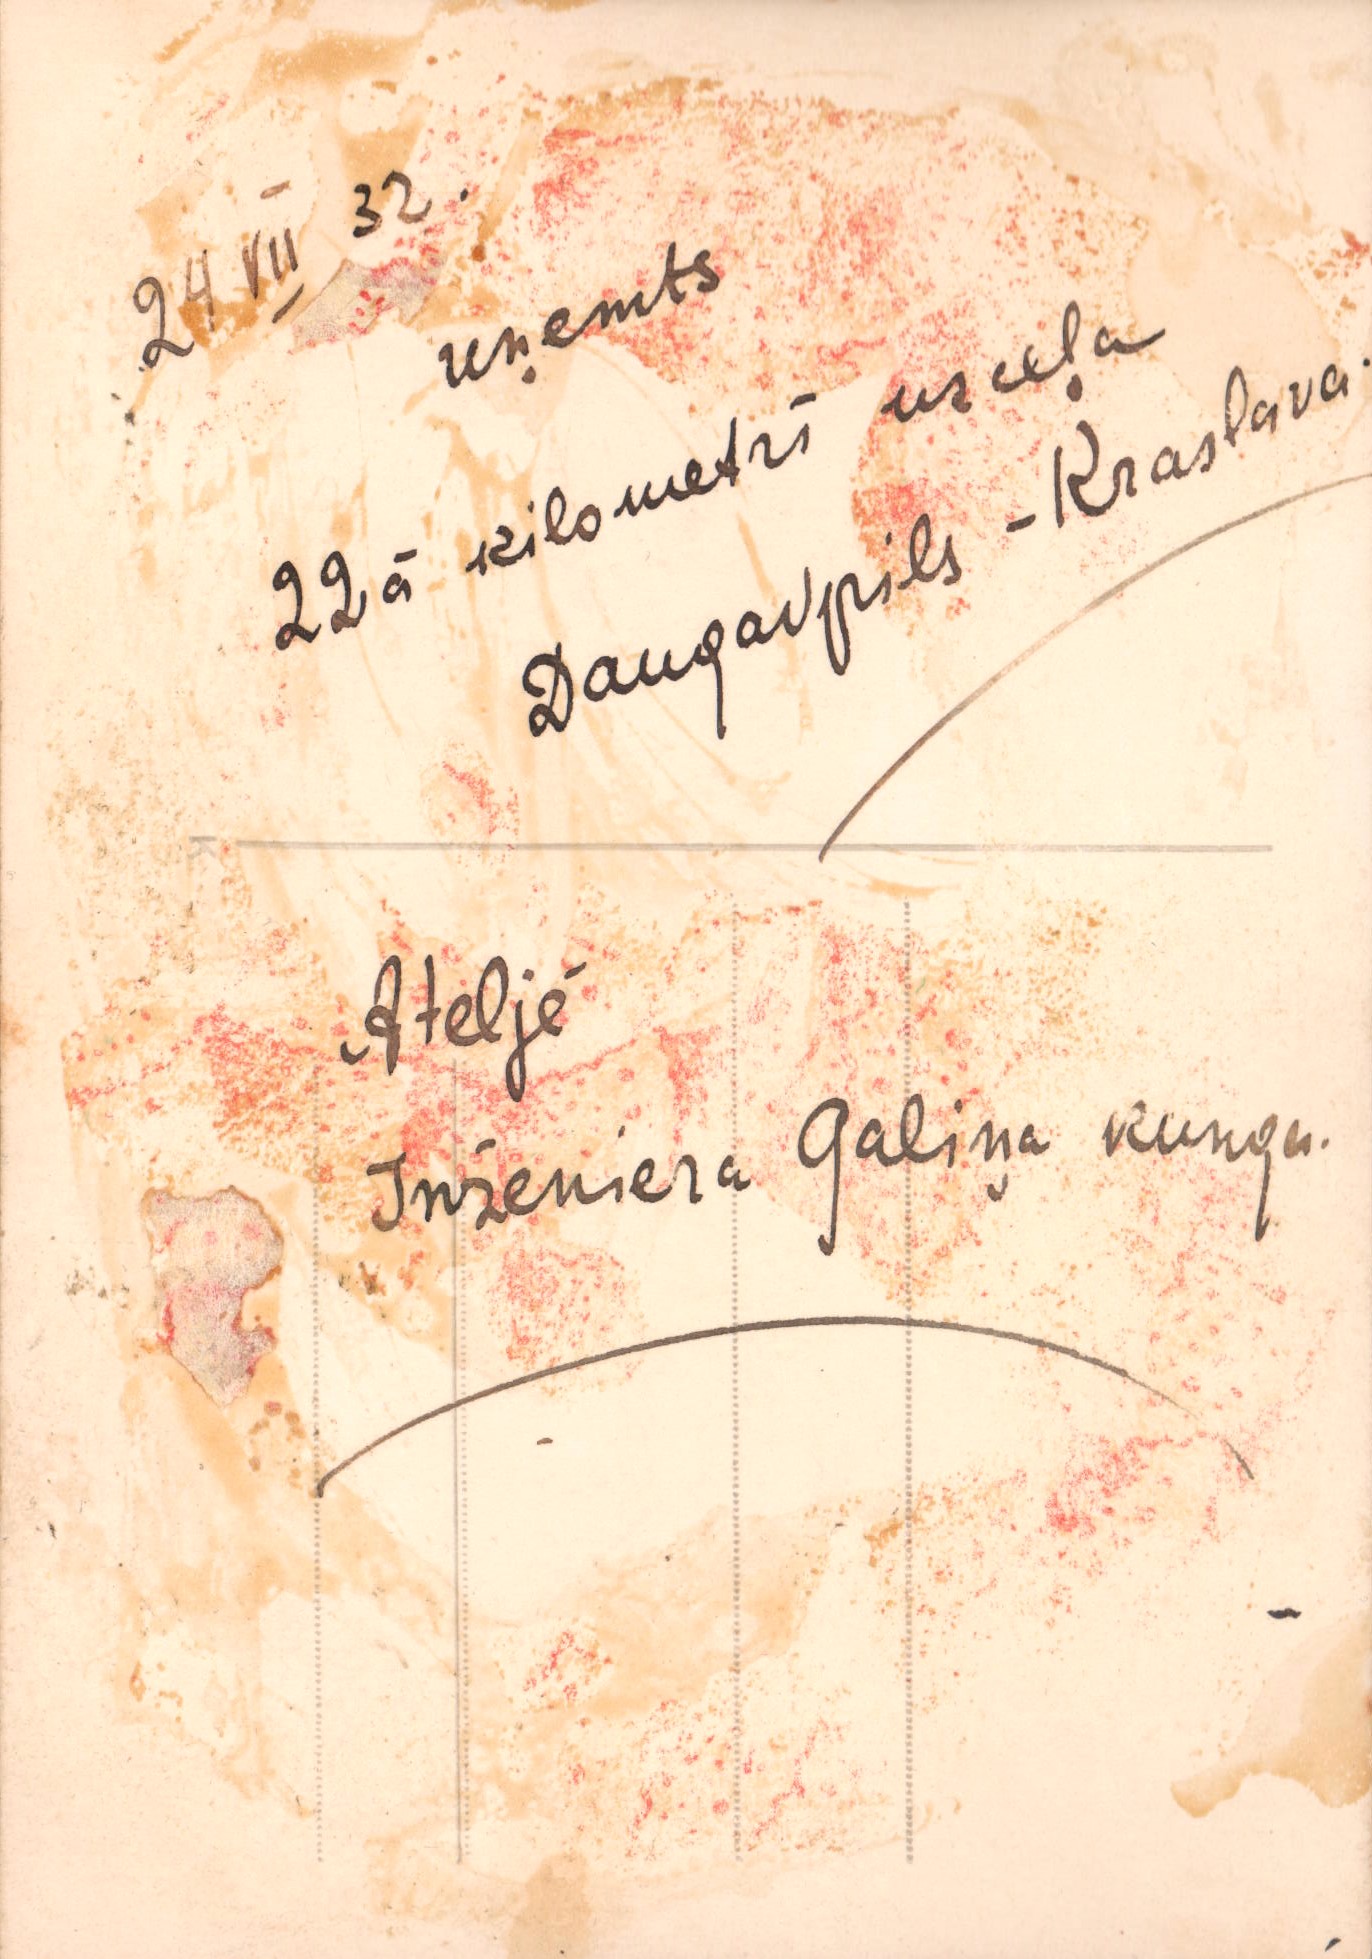 24 VII 32.
uzņemts
22ā kilometrī uz ceļa
Daugavpils - Kraslava.
Ateljē
Inženiera Galiņa kunga.